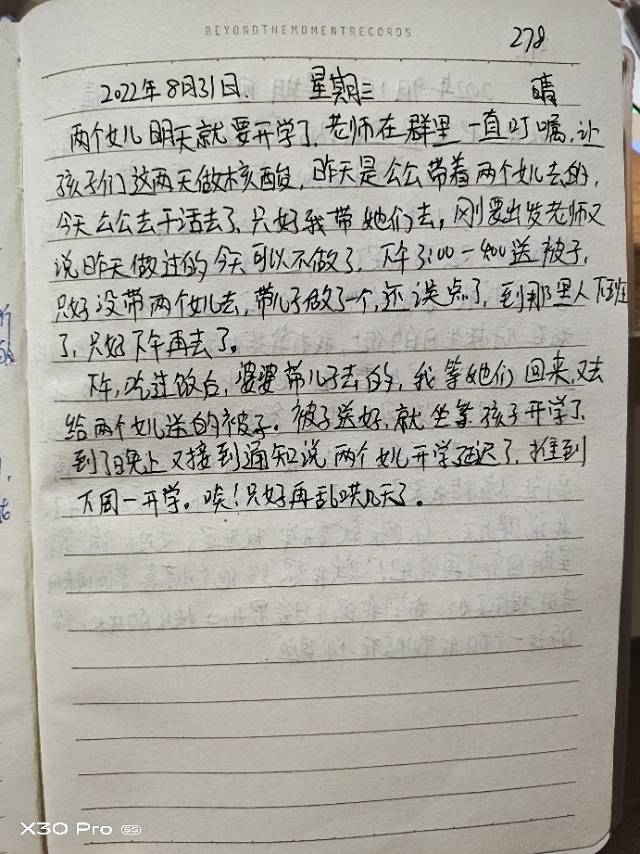 BEYONDTHEMOMENTRECORDS
278
2022年8月31日. 星期三 晴
两个女儿明天就要开学了,老师在群里一直叮嘱,让
孩子们这两天做核酸,昨天是公公带着两个女儿去的,
今天公公去干活去了,只好我带她们去,刚要出发老师又
说昨天做过的今天可以不做了,下午3:00-4:00送被子,
只好没带两个女儿去,带儿子做了一个,还误点了,到那里人下班
了,只好下午再去了。
下午,吃过饭后,婆婆带儿子去的,我等她们回来,又去
给两个女儿送的被子。被子送好,就坐等孩子开学了.
到了晚上又接到通知说两个女儿开学延迟了,推到
下周一开学。唉!只好再乱哄几天了。
X30 Pro 5G